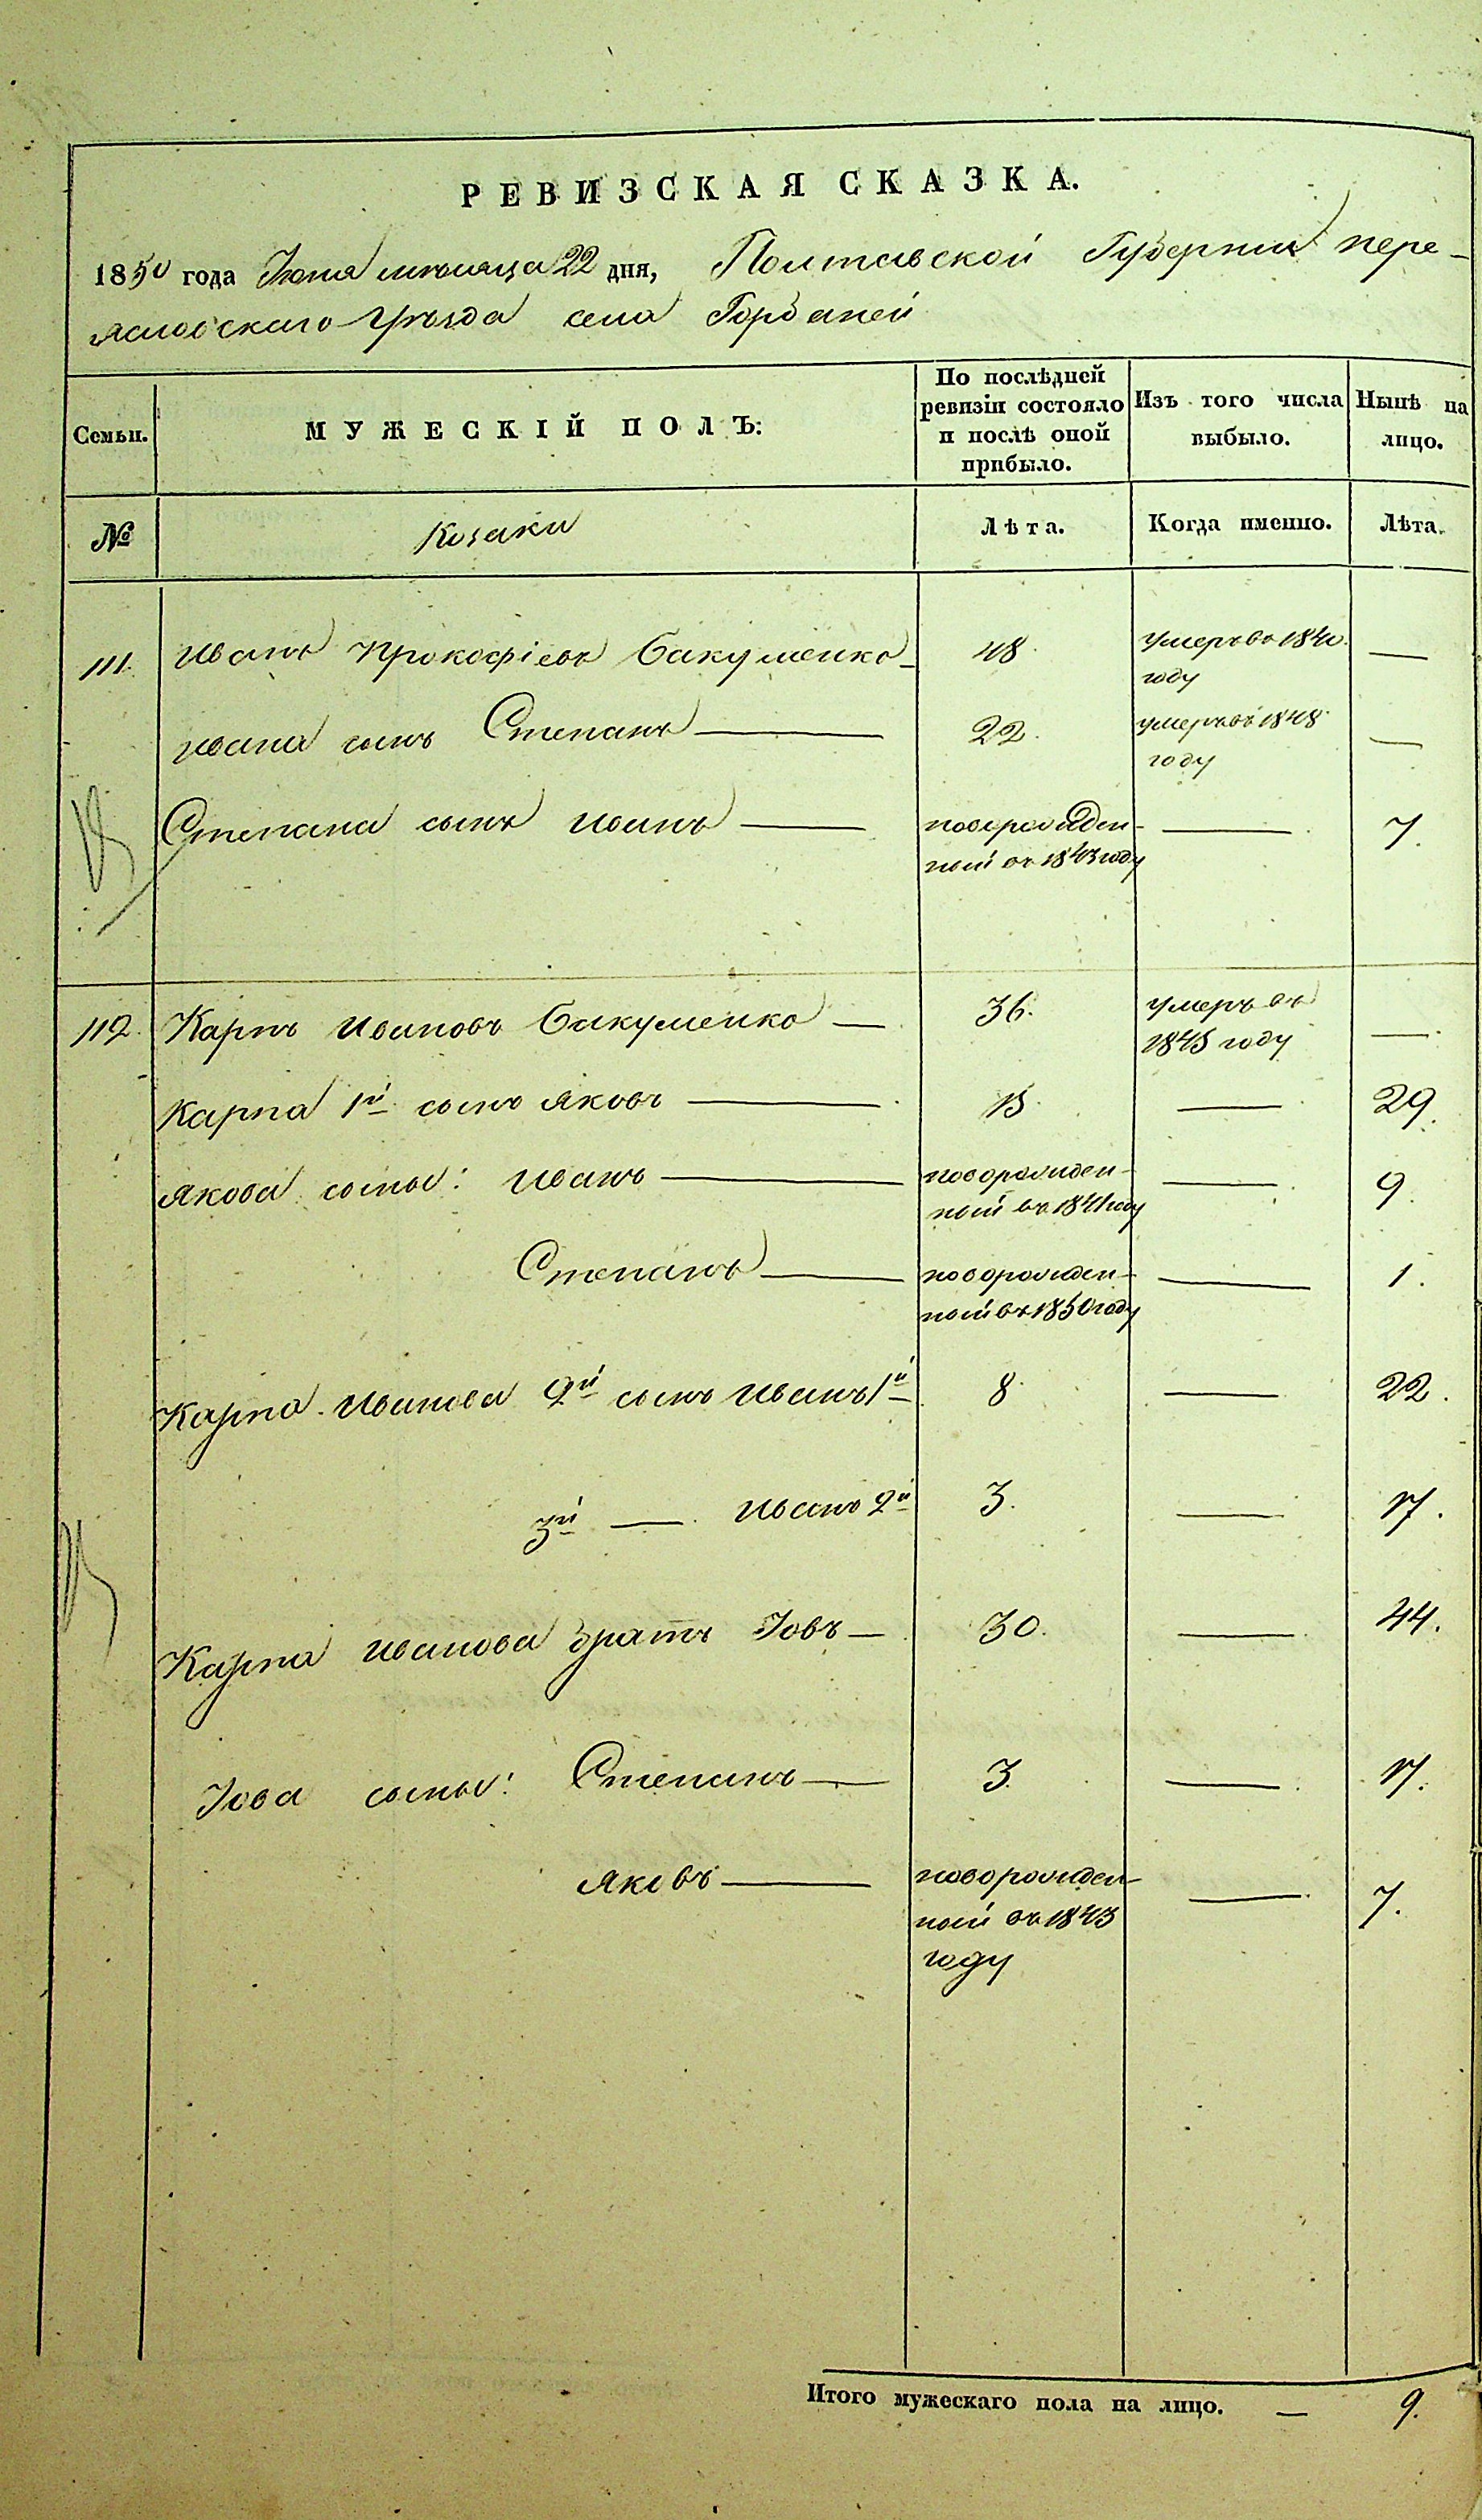 РЕВИЗСКАЯ СКАЗКА.
1850 года Июня мѣсяца 22 дня, Полтавской Губернiи Пере-
яславскаго Уѣзда села Горбаней
Семьи. МУЖЕСКІЙ ПОЛЪ: По послѣдней ревизіи состояло и послѣ оной прибыло. Изъ того числа выбыло. Нынѣ на лицо.
№ Козаки Лѣта. Когда именно. Лѣта.
111. Иванъ Прокофіевъ Бакуменко 48. умеръ въ 1840 году —
Ивана сынъ Степанъ — 22. умеръ въ 1848 году —
Степана сынъ Иванъ — новорожден-ный въ 1843 году — 7.
112. Карпъ Ивановъ Бакуменко — 36. умеръ въ 1845 году —
Карпа 1й сынъ Яковъ — 15. — 29.
Якова сыны: Иванъ — новорожден-ный въ 1841 году — 9.
Степанъ — новорожден-ный въ 1850 году — 1.
Карпа Иванова 2й сынъ Иванъ 1й 8. — 22.
3й — Иванъ 2й 3. — 17.
Карпа Иванова братъ Іовъ — 30. — 44.
Іова сыны: Степанъ — 3. — 17.
Яковъ — новорожден-ный въ 1843 году — 7.
Итого мужескаго пола на лицо. — 9.